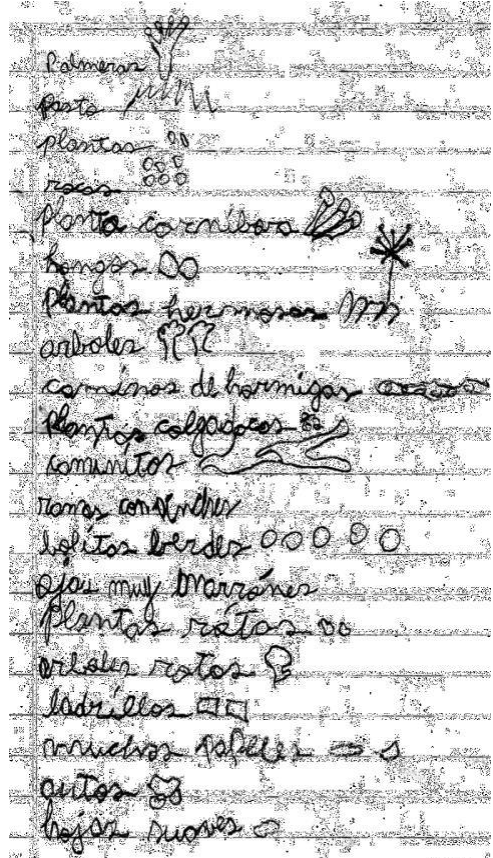 Palmeras
pasto
plantas
rocas
planta carníbora
hongos
plantas hermosas
arboles
caminos de hormigas
plantas colgadoras
caminitos
ramas con
bolitas berdes
ojas muy marrónes
plantas rótas
arboles rotos
ladrillos
muchos papeles
autos
hojas suaves